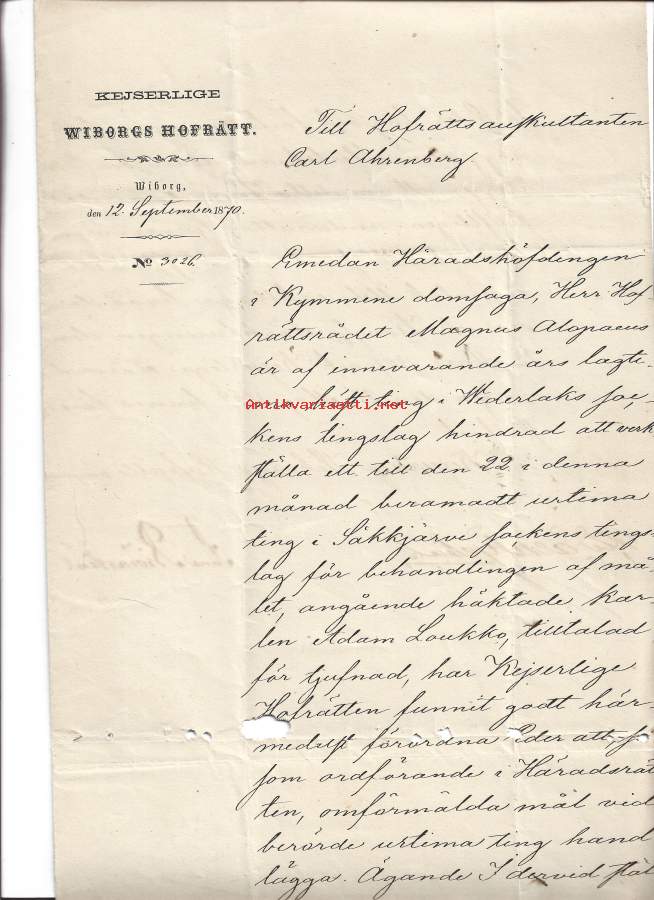 KEJSERLIGE
WIBORGS HOFRÄTT.
Wiborg,
den 12 September 1870.
No 3026.
Till Hofrättsauskultanten
Carl Ahrenberg
Emedan Häradshöfdingen
i Kymmene domsaga, Herr Hof-
rättsrådet Magnus Alopaeus
är af innevarande års lagti-
ma höst ting i Wederlaks soc-
Antikvariaatti.net
kens tingslag hindrad att verk
ställa ett till den 22 i denna
månad beramadt urtima
ting i Säkkjärvi sockens tings-
lag för behandlingen af må-
let, angående häktade kar-
len Adam Loukko, tilltalad
för tjufnad, har Kejserlige
Hofrätten funnit godt här-
medelst förordna Eder att, så
som ordförande i Häradsrät
ten, omförmälda mål vid
berörde urtima ting hand
lägga. Ägande I dervid